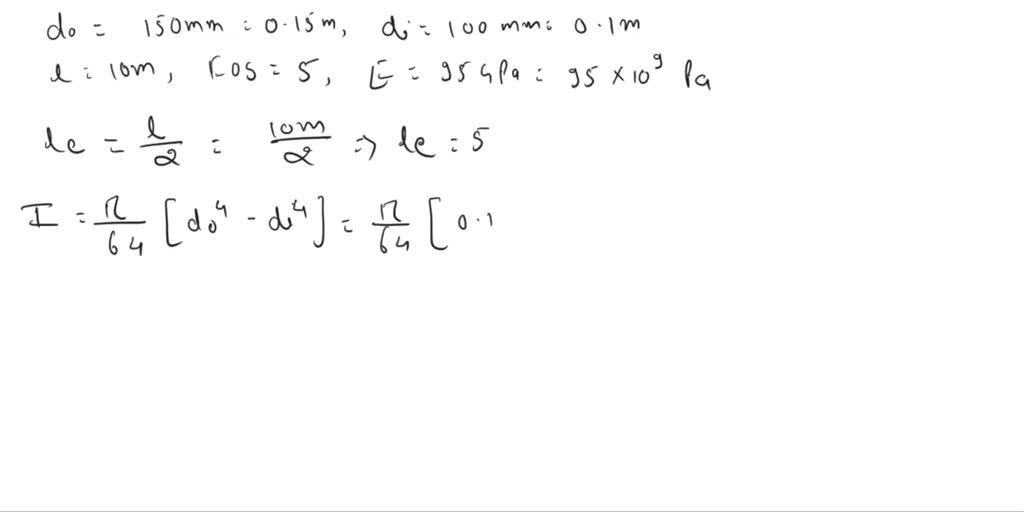 do = 150mm = 0.15m, di = 100 mm = 0.1m
l = 10m, FOS = 5, E = 95 GPa = 95 × 10⁹ Pa
le = l/2 = 10m/2 => le = 5
I = π/64 [do⁴ - di⁴] = π/64 [0.1